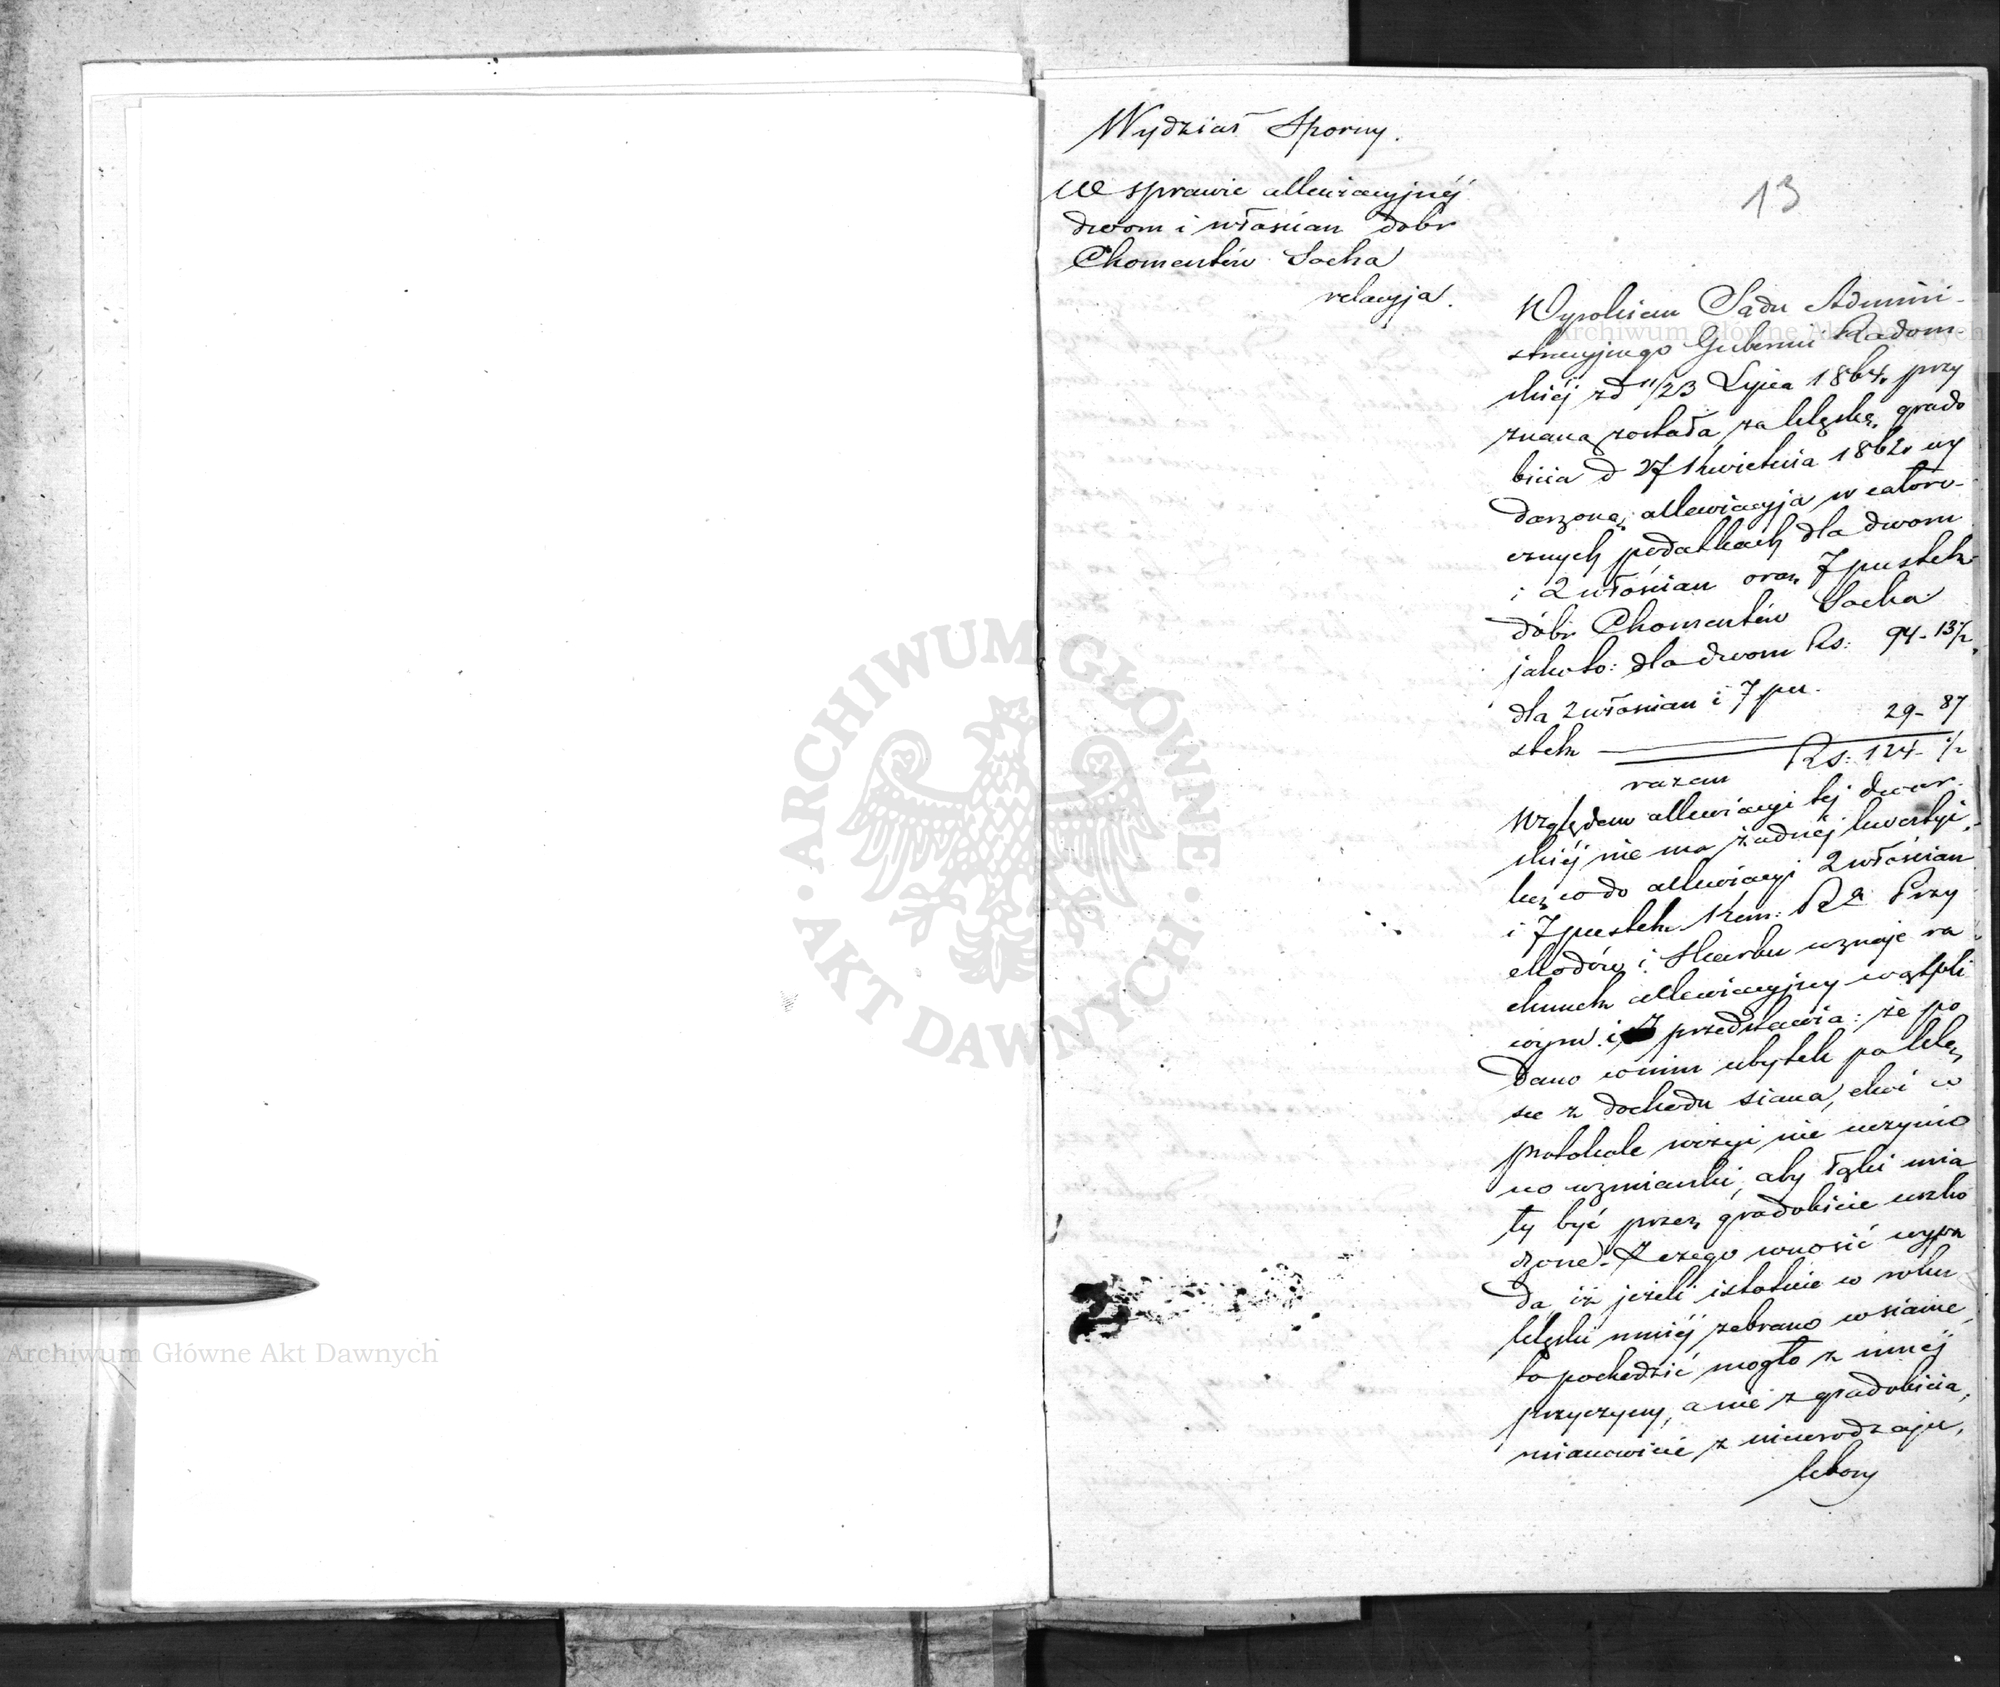 Wydział Sporny.
W sprawie allewiacyjnéj
dworu i włościan dóbr
Chomentów Socha
relacyja.
13
Wyrokiem Sądu Admini-
stracyjnego Gubernii Radom-
skiéj z d 11/23 Lipca 1864. przy
znaną została za klęskę grado
bicia d 27 Kwietnia 1862. wy
darzoną, allewiacyja w całoro-
cznych podatkach dla dworu
i 2 włościan oraz 7 pustek
dóbr Chomentów Socha
jako to: dla dworu Rs: 94-13½
dla 2 włościan i 7 pu-
stek 29-87
razem Rs: 124-½
Względem allewiacyi téj dwor-
skiéj nie ma żadnéj kwestyi,
lecz co do allewiacyi 2 włościan
i 7 pustek Kom: R Przy
chodów i Skarbu uznaje ra
chunek allewiacyjny wątpli
wym i przedstawia: że po
dano w nim ubytek po klę
sce z dochodu siana, choć w
protokole rewizyi nie uczynio
no wzmianki, aby łąki mia
ły być przez gradobicie uszko
dzone. Z czego wnosić wypa
da, iż jeżeli istotnie w roku
klęski mniéj zebrano w sianie,
to pochodzić mogło z innéj
przyczyny, a nie z gradobicia,
mianowicie z nieurodzaju,
który
Archiwum Główne Akt Dawnych
Archiwum Główne Akt Dawnych
ARCHIWUM GŁÓWNE
AKT DAWNYCH